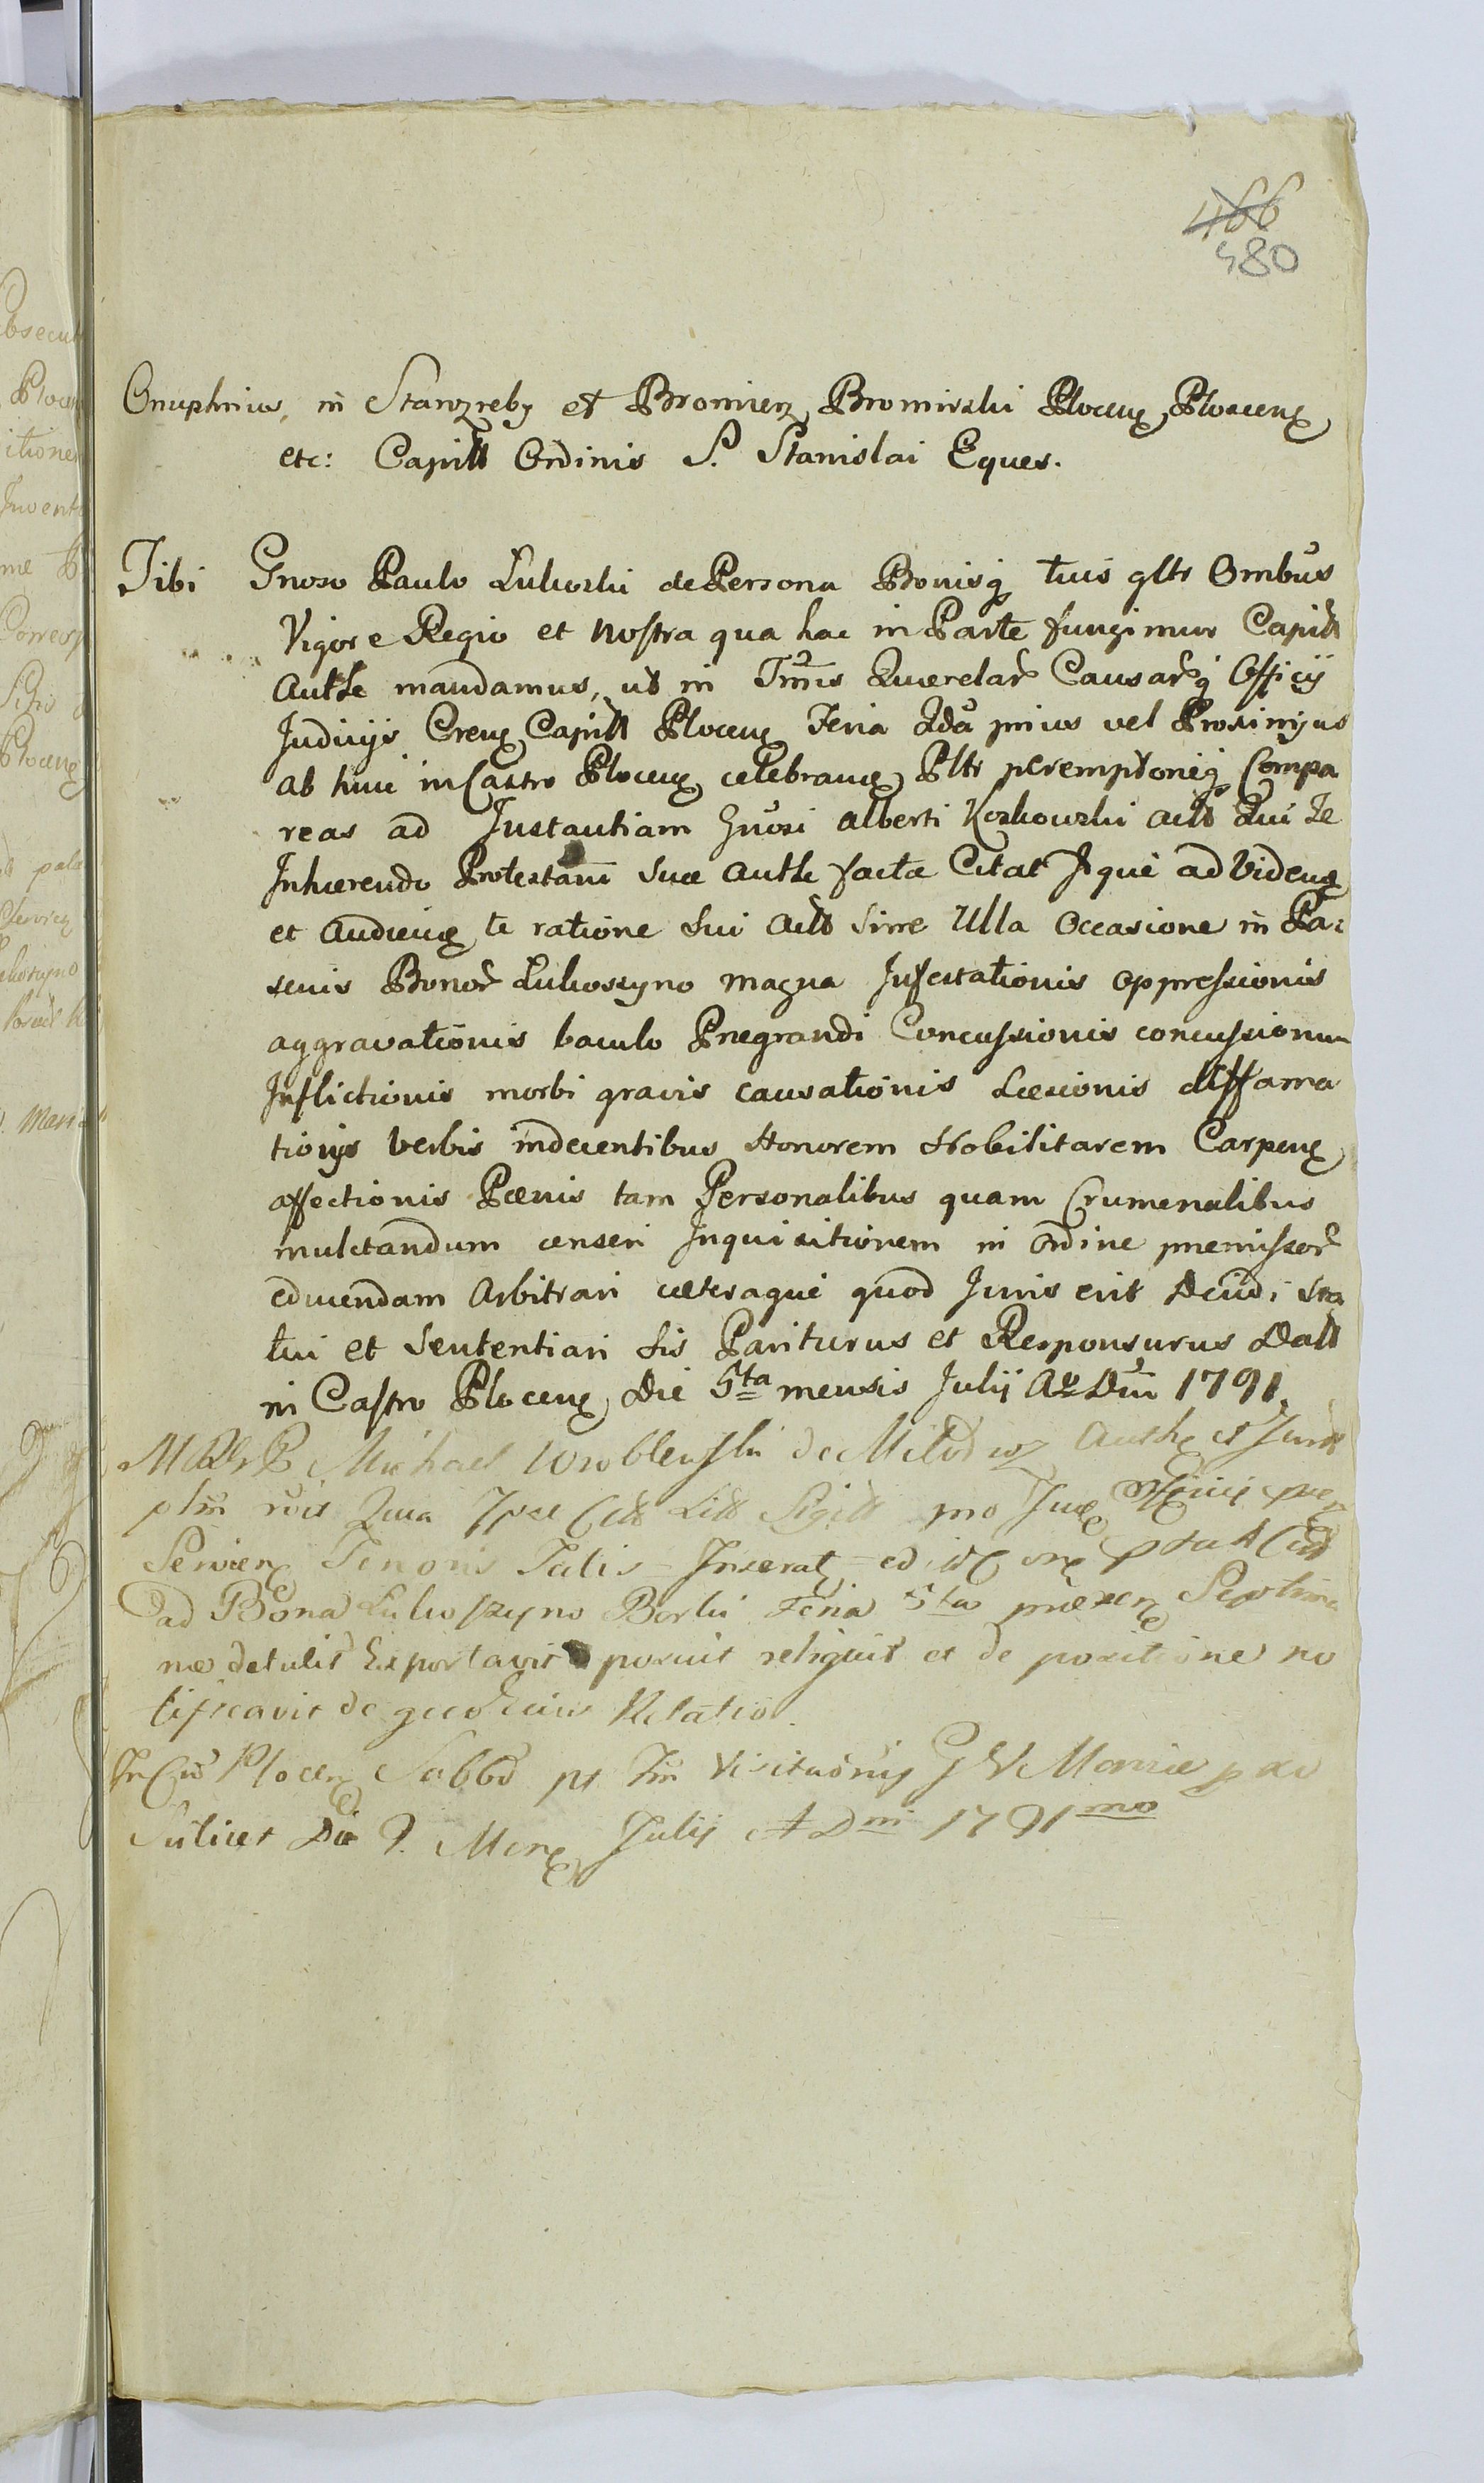 466
480
Onuphrius, in Starozreby et Bromierz Bromirski Plocen Ploscen
etc: Capitt Ordinis S. Stanislai Eques.
Tibi Gnoso Paulo Lukoski de Persona Bonisq tuis gltr Ombus
Vigore Regio et nostra qua hac in Parte fungimur Capitt
Autte mandamus, ut in Tmis Querelar Causarq Officij
Judicijs Cren Capitt Plocen Feria 2da prius vel Proximius
ab hinc in Castro Plocen celebran Pltr peremptorieq Compa
reas ad Instantiam Gnosi Alberti Koskowski Actt Qui Te
Inhaerendo Protestani suae Autte factae Citat Isque ad Viden
et Audien te ratione sui Actt sine Ulla Occasione in Pa:
scuis Bonor Lukoszyno magna Infestationis oppressionis
aggravationis baculo Praegrandi Concussionis concussionum
Inflictionis morbi gravis causationis Laesionis diffama
tionis Verbis indecentibus Honorem Nobilitarem Carpen
affectionis Paenis tam Personalibus quam Crumenalibus
mulctandum censeri Inquisitionem in ordine praemissor
educendam Arbitrari caeteraque quod Juris erit Decidi sta
tui et Sententiari sis Pariturus et Responsurus Datt
in Castro Plocen Die 5ta mensis Julij Ao Dni 1791.
Michael Wroblewski de Autte et Jurd
ptm rvit Qua Ipse Citt Litt Sigitt pro
Servien Tenoris Talis Inserat
ad Bona Lukoszyno Borki Feria 5ta praesen Septima
nae detulit Exportavit posuit reliquit et de positione no
tificavit de quo Relatio.
In Plocen Sabbo pt Tm Visitaonis G V Mariae pxo
Scilicet Die 9. Men Julij A Dni 1791mo